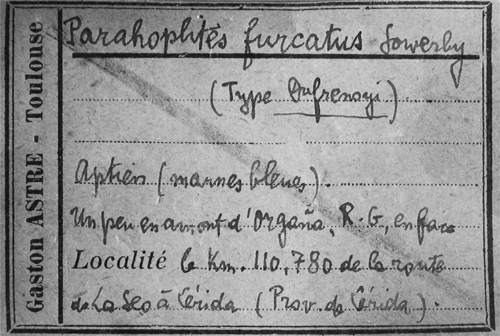 Gaston ASTRE - Toulouse
Parahoplites furcatus Sowerby
(Type Dufrenoyi)
Aptien (marnes bleues).
Un peu en amont d'Organa, R. G., en face
Localité le Km. 110,780 de la route
de La Seo à Lérida (Prov. de Lérida).